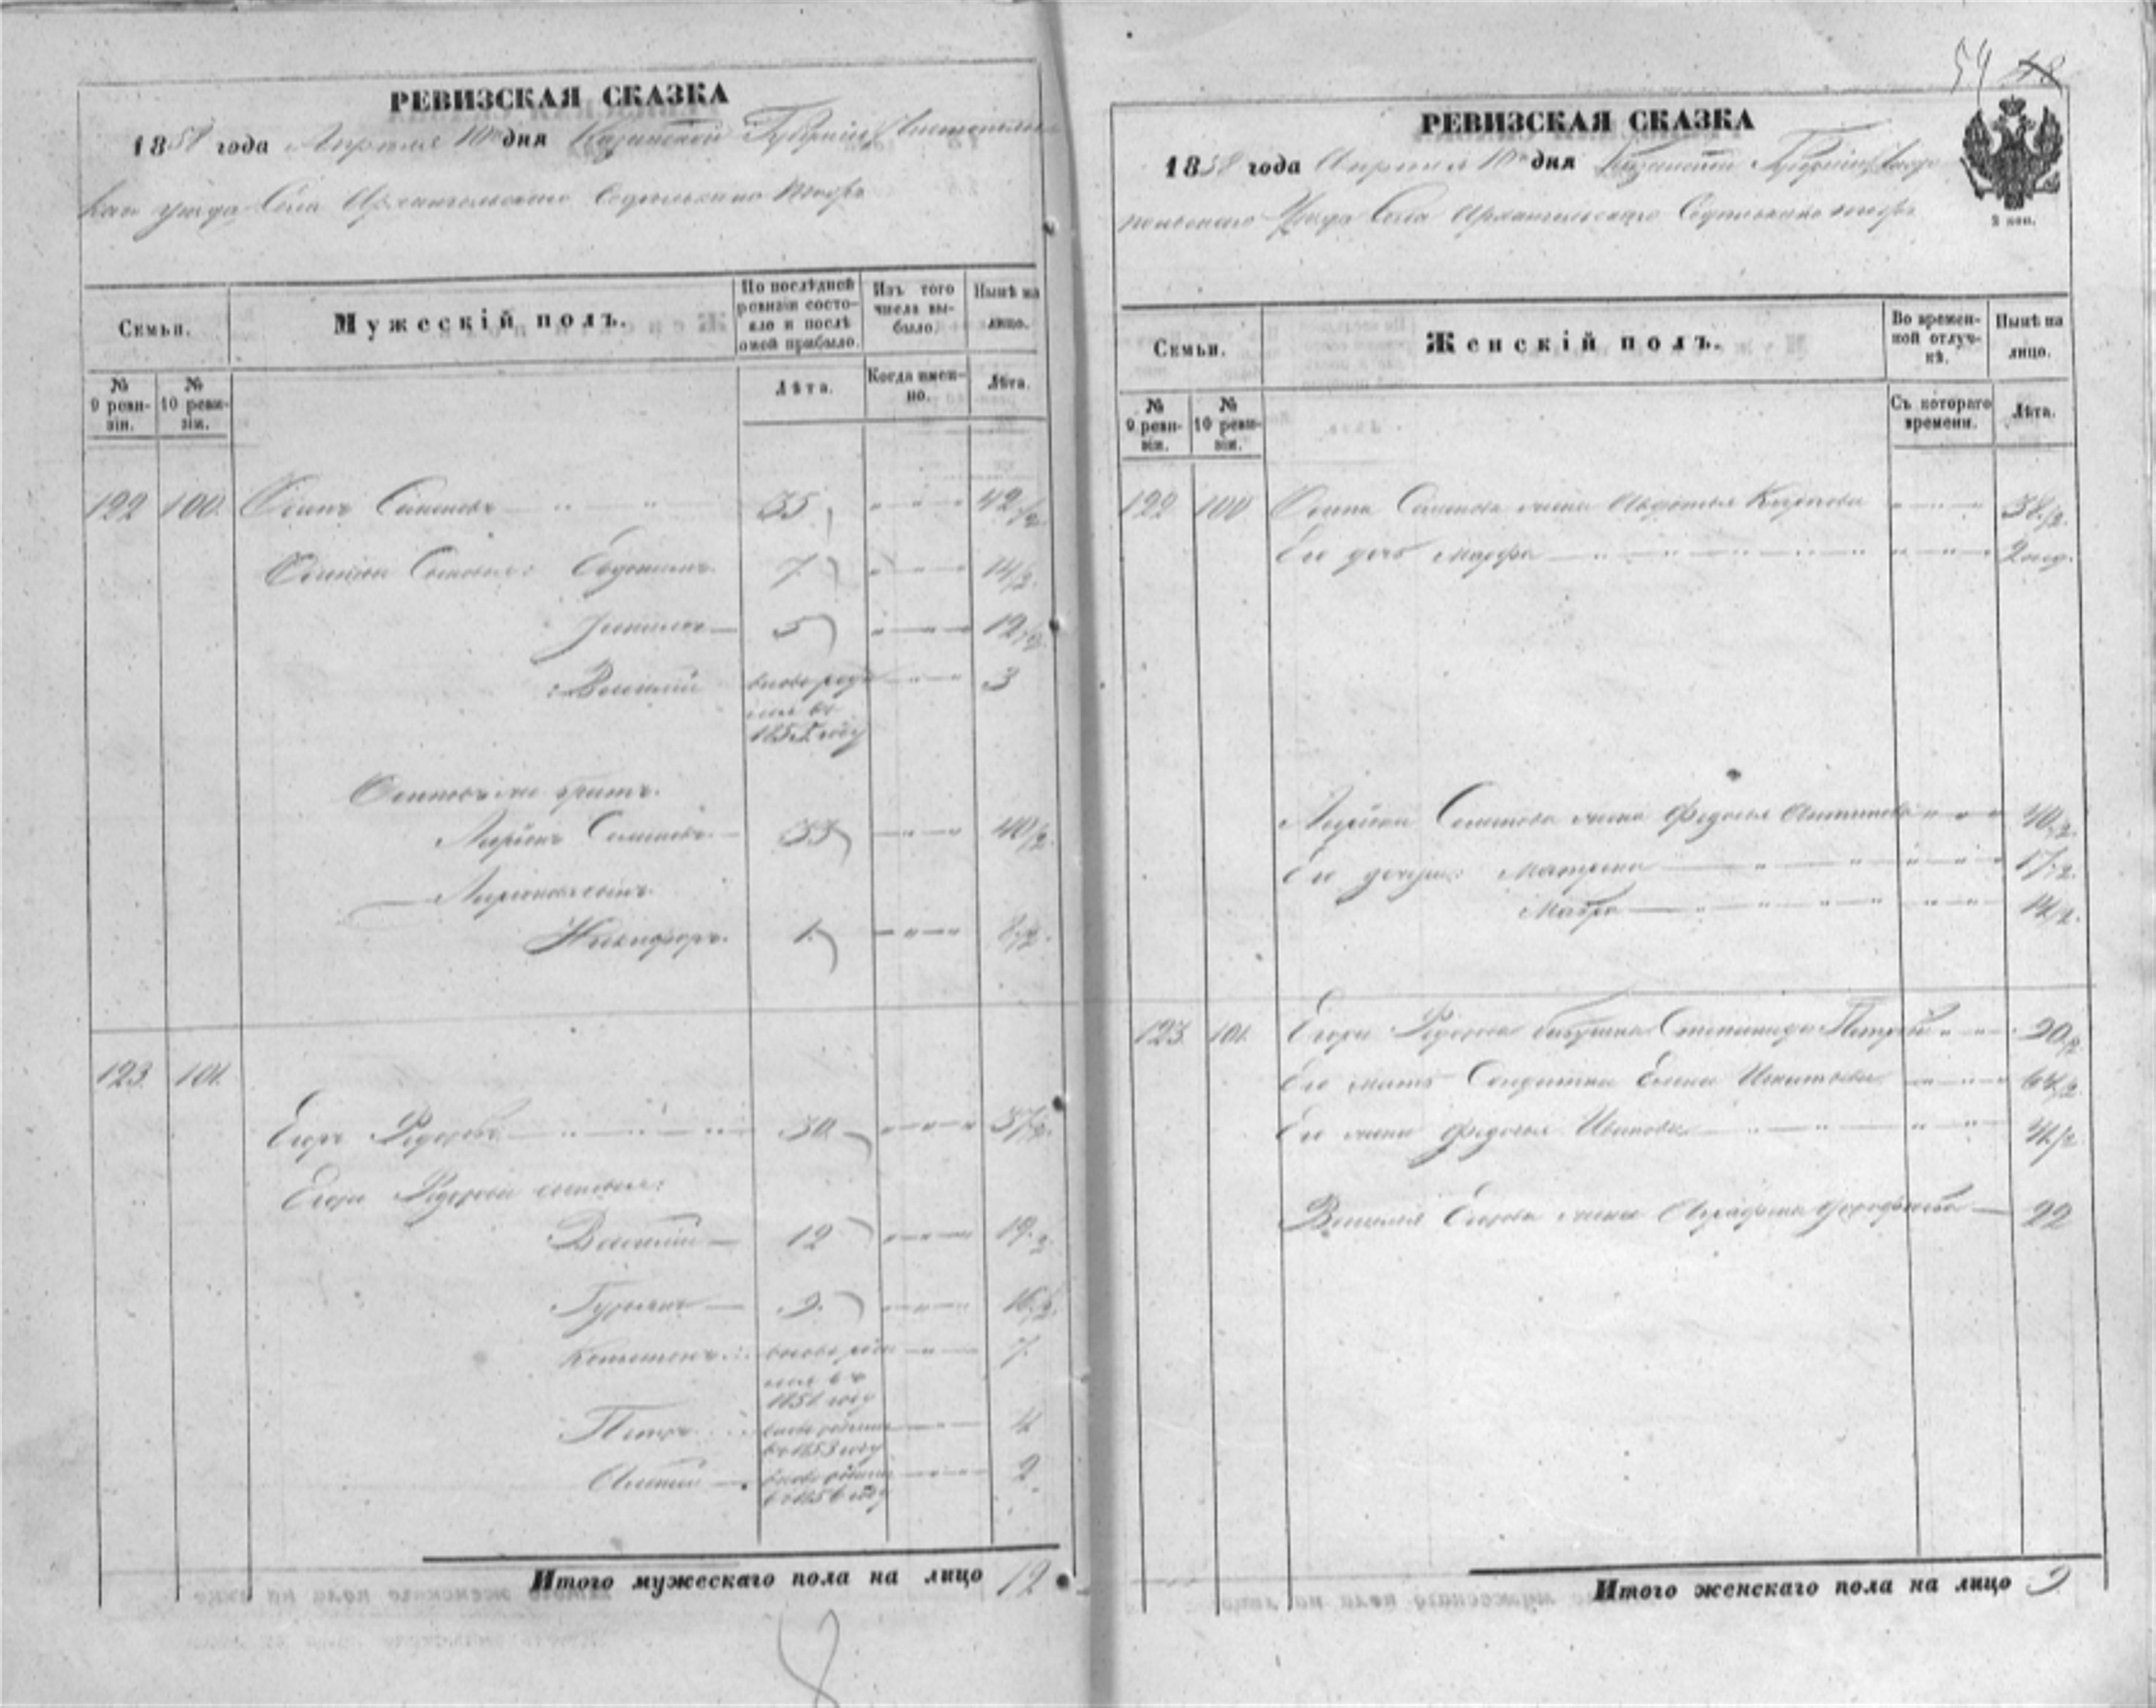 РЕВИЗСКАЯ СКАЗКА
1858 года Апреля 10го дня Казанской Губернии Чистопольс
каго уезда Села Архангельскаго
Семьи.
Мужескій полъ.
По послѣдней ревизіи состояло и послѣ оной прибыло.
Изъ того числа выбыло.
Нынѣ на лицо.
№ 9 ревизіи.
№ 10 ревизіи.
Лѣта.
Когда именно.
Лѣта.
122 100 Осипъ Семеновъ 35 42 1/2
Осипа Сыновья: 7 14 1/2
5 12 1/2
Василий вновь роди 3
лся въ
1855 году
Осиповъ братъ
Ларіонъ Семеновъ 33 40 1/2
Ларіоновъ сынъ
Никифоръ 1 8 1/2
123 101
Егоръ Федоровъ 30 37 1/2
Егора Федорова сыновья:
Василий 12 19 1/2
Гурьянъ 9 16 1/2
вновь роди 7
лся въ
1851 году
Петръ 4
въ 1853 году
2
въ 1856 году
Итого мужескаго пола на лицо 12
8
54 48
РЕВИЗСКАЯ СКАЗКА
1858 года Апреля 10го дня Казанской Губернии Чисто
польскаго Уезда Села Архангельскаго
2 коп.
Семьи.
Женскій полъ.
Во временной отлучкѣ.
Нынѣ на лицо.
№ 9 ревизіи.
№ 10 ревизіи.
Съ котораго времени.
Лѣта.
122 100 Осипа Семенова жена Авдотья Карпова 38 1/2
Его дочь Марфа 2 нед.
Ларіона Семенова жена Федосья Антипова 40 1/2
Его дочери: Матрена 17 1/2
Мавра 14 1/2
123 101 Егора Федорова бабушка Степанида Петрова 90 1/2
Его мать Солдатка Елена Игнатьева 64 1/2
Его жена Федосья Иванова 41 1/2
Василия Егорова жена Аграфена 22
Итого женскаго пола на лицо 9